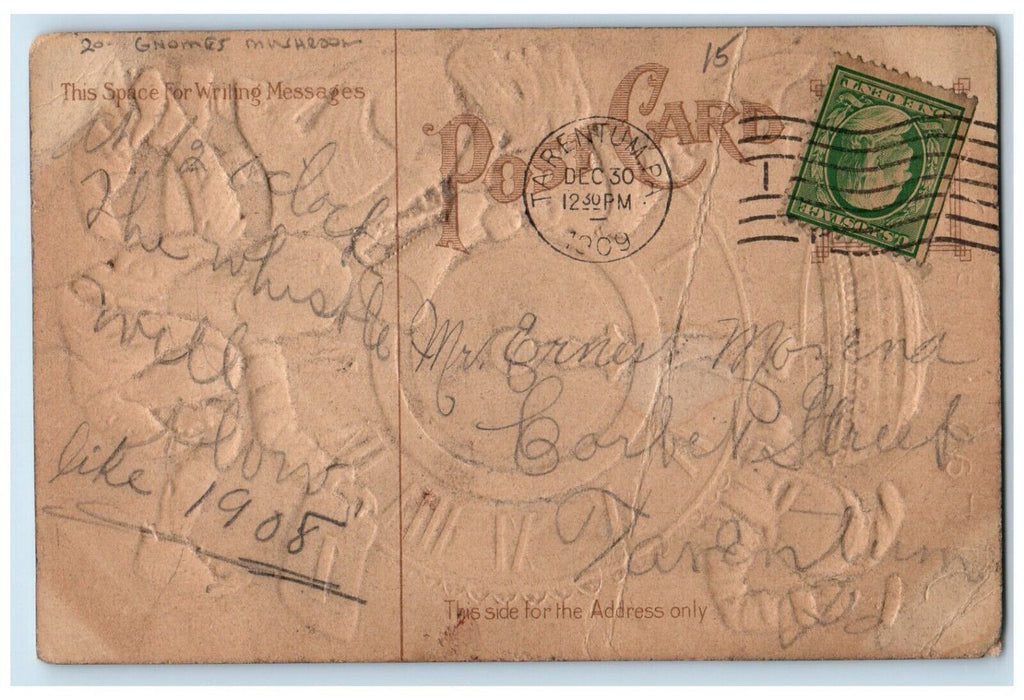 20- GNOMES MUSHROOM
15
This Space For Writing Messages
POST CARD
TARENTUM, PA.
DEC 30
12 30 PM
1909
U.S. POSTAGE
At 12 o'clock
The whistle
will
blow
like 1908
Mr. Ernest Morena
Corbet Street
Tarentum
Pa.
This side for the Address only